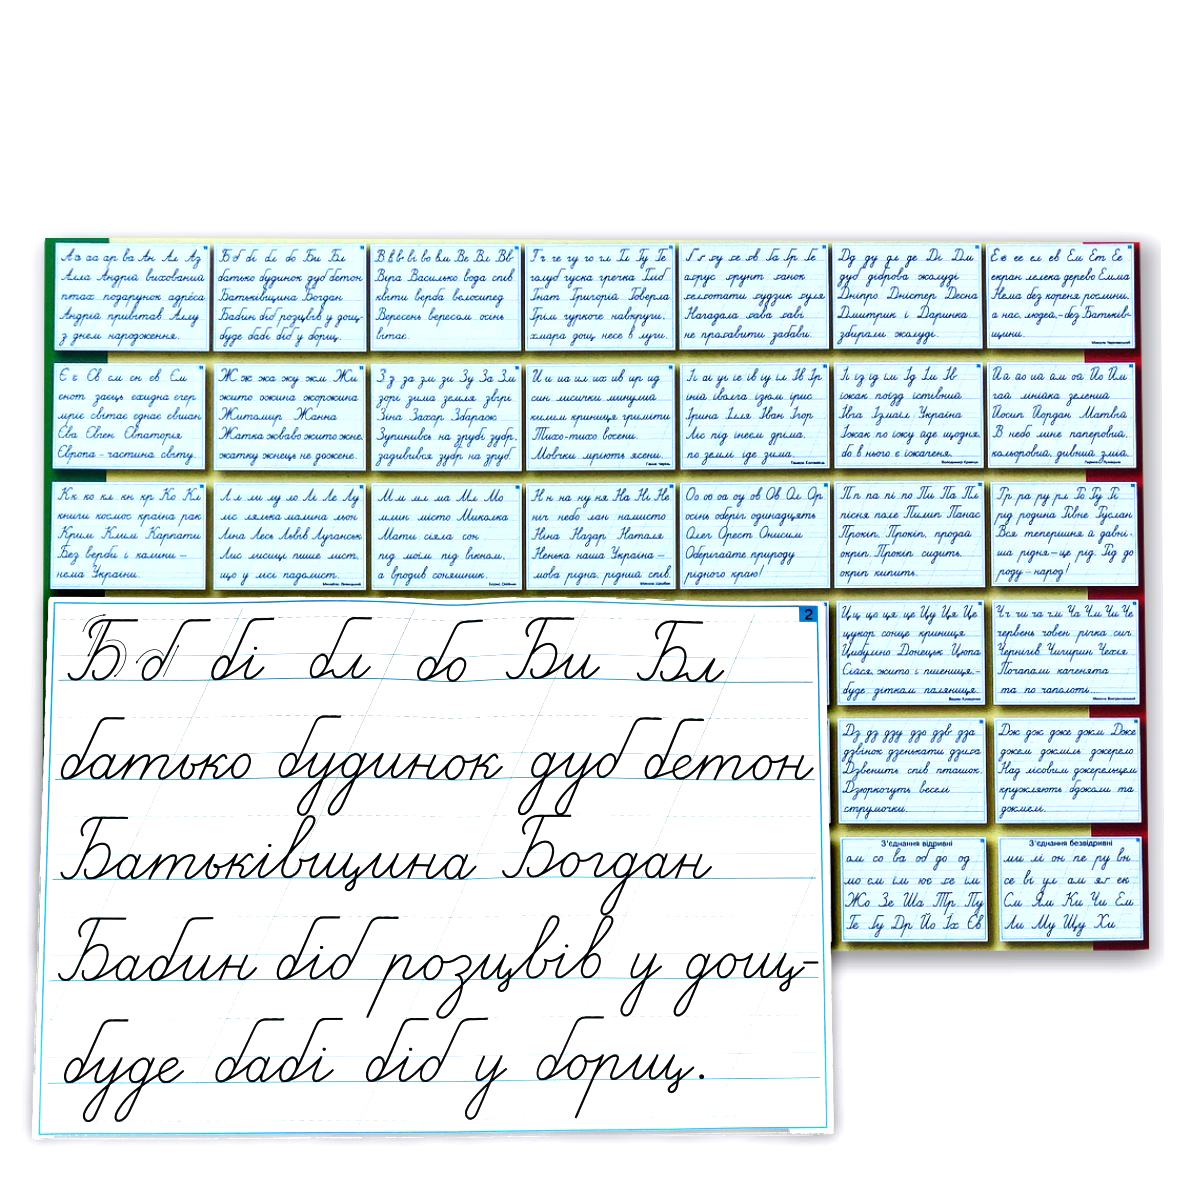 Аа аа ар ва Ан Ал Аз
Алла Андрій вихований
птах подарунок адреса
Андрій привітав Аллу
з днем народження.
Б б бі бл бо Би Бл
батько будинок дуб бетон
Батьківщина Богдан
Бабин біб розцвів у дощ-
буде бабі біб у борщ.
Віра Василько вода спів
квіти верба велосипед
Вересень вересом осінь
вітає.
голуб гуска гречка
Гнат Григорій Говерла
Грім гуркоче навкруги,
хмара дощ несе в луги.
аґрус ґрунт ґанок
ґелґотати ґудзик ґуля
Нагадала ґава ґаві
не проґавити забави.
Дд ду дл де Ді Дм
дуб діброва жолуді
Дніпро Дністер Десна
Дмитрик і Даринка
збирали жолуді.
Ее ее ел ев Ем Ет Ее
екран лелека дерево Емма
Нема без кореня рослини,
а нас, людей,-без Батьків-
щини.
Є є Єв єм єн єв Єм
єнот заєць єхидна єгер
мріє світає єднає євшан
Єва Євген Євпаторія
Європа - частина світу.
Ж ж жа жу жм Жи
жито ожина жоржина
Житомир Жанна
Жатка жваво жито жне,
жатку жнець не дожене.
З з за зм зи Зу За Зм
зорі зима земля звірі
Зіна Захар Збараж
Зупинивсь на зрубі зубр,
задивився зубр на зруб.
И и иа им их ив ир ид
син лисички минулий
килим криниця гриміти
Тихо-тихо восени.
Мовчки мріють ясени.
іній іволга ізюм ірис
Ірина Ілля Іван Ігор
Ліс під інеєм дріма,
по землі іде зима.
їжак поїзд їстівний
Їжак по їжу йде щодня,
бо в нього є їжаченя.
гай лінійка зелений
Йосип Йордан Матвій
В небо лине паперовий,
кольоровий, дивний змій.
Кк ко кл кн кр Ко Кл
книги космос країна рак
Крим Клим Карпати
Без верби і калини –
нема України.
Лл ли лу ло Лі Ле Лу
ліс лялька малина льон
Ліна Лесь Львів Луганськ
Лис лисиці пише лист,
що у лісі падолист.
Мм мл ма Мл Мо
млин місто Миколка
Мати сіяла сон
під моїм під вікном,
а вродив соняшник.
Нн на ну ня На Ні Не
ніч небо лан намисто
Ніна Назар Наталя
Ненька наша Україна –
мова рідна, рідний спів.
Оо оо оа оу ов Ов Ол Ор
осінь оберіг одинадцять
Олег Орест Онисим
Оберігайте природу
рідного краю!
Пп па пі по Пи Па Пл
пісня поле Пилип Панас
Прокіп, Прокіп, продай
окріп. Прокіп сидить,
окріп кипить.
Рр ра ру рл Ро Ру Рі
рід родина Рівне Руслан
Вся теперішня й давні-
ша рідня – це рід. Рід до
роду – народ!
2
Б б бі бл бо Би Бл
батько будинок дуб бетон
Батьківщина Богдан
Бабин біб розцвів у дощ-
буде бабі біб у борщ.
Цц що ця це Цу Ця Це
цукор сонце криниця
Цибулино Донецьк Цюпа
Сійся, жито і пшениця,-
буде діткам паляниця.
Чч чи ча чм Ча Чм Чи Че
червень човен річка сич
Чернігів Чигирин Чехія
Почапали каченята
та по чаполоті...
Дз дз дзу дзо дзв дза
дзвінок дзенькати дзиґа
Дзвенить спів пташок.
Дзюркочуть веселі
струмочки.
Дж дж дже джм Дже
джем джміль джерело
Над лісовим джерельцем
кружляють бджоли та
джмелі.
З'єднання відривні
ам со ва об до од
мо єм їм ює ґе їм
Жо Зе Ша Тр Пу
Ге Ґу Др Йо Їх Єв
З'єднання безвідривні
ми лі он пе ру вн
се ві ул ам ял ек
См Ям Ки Чи Ем
Ли Му Щу Хи